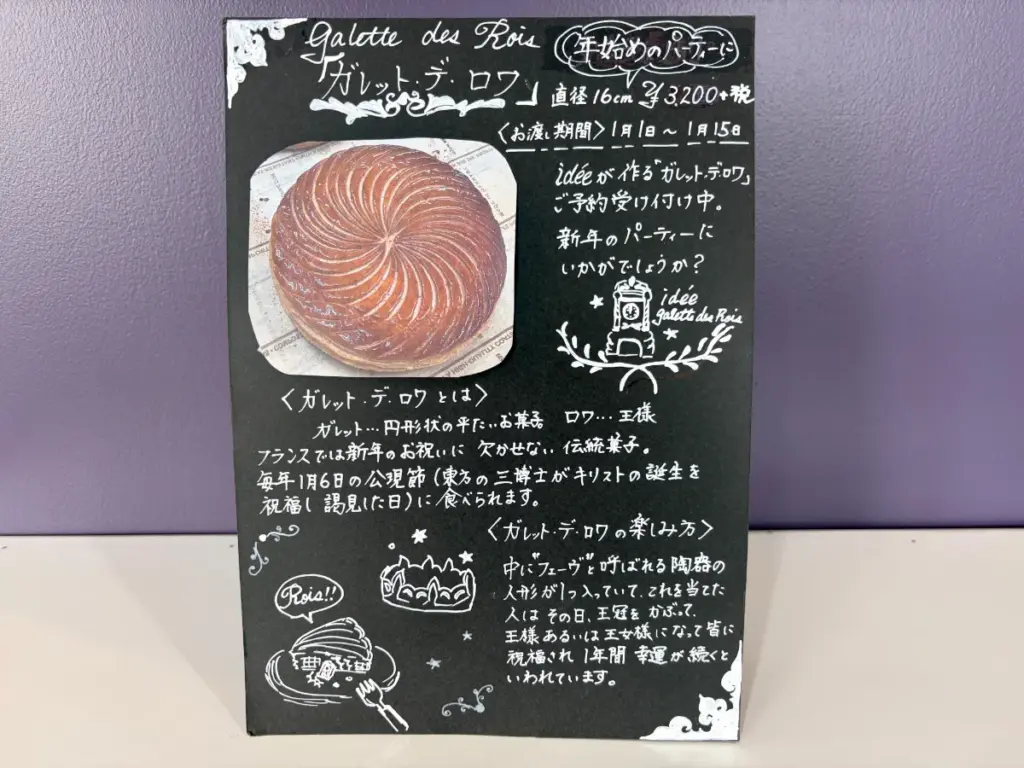 Galette des Rois
年始めのパーティーに
「ガレット・デ・ロワ」
直径16cm ¥3,200+税
〈お渡し期間〉1月1日～1月15日
idéeが作る「ガレット・デ・ロワ」
ご予約受け付け中。
新年のパーティーに
いかがでしょうか?
idée
galette des Rois
〈ガレット・デ・ロワとは〉
ガレット…円形状の平たいお菓子 ロワ…王様
フランスでは新年のお祝いに欠かせない伝統菓子。
毎年1月6日の公現節(東方の三博士がキリストの誕生を
祝福し謁見した日)に食べられます。
〈ガレット・デ・ロワの楽しみ方〉
中に"フェーヴ"と呼ばれる陶器の
人形が1つ入っていて、これを当てた
人はその日、王冠をかぶって、
王様あるいは王女様になって皆に
祝福され1年間幸運が続くと
いわれています。
Rois!!